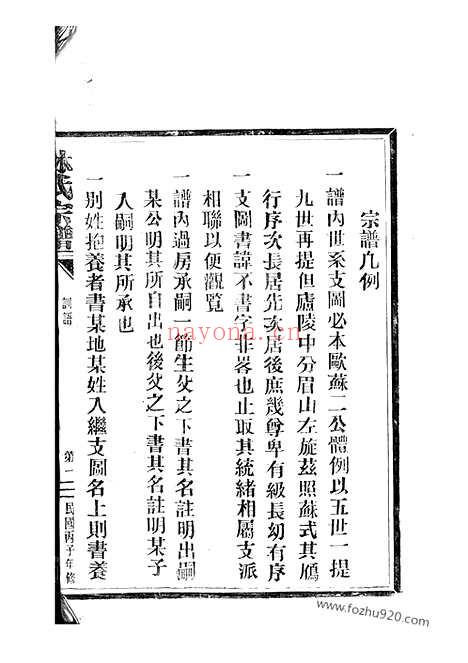 宗譜凡例
一譜內世系支圖必本歐蘇二公體例以五世一提
九世再提但廬陵中分眉山左旋茲照蘇式其鴈
行序次長居先次居後庶幾尊卑有級長幼有序
一支圖書諱不書字非畧也止取其統緒相屬支派
相聯以便觀覽
一譜內過房承嗣一節生父之下書其名註明出嗣
某公明其所自出也後父之下書其名註明某子
入嗣明其所承也
一別姓抱養者書某地某姓入繼支圖名上則書養
氏宗譜
第一
民國丙子年修
nayona.cn
www.fozhu920.com